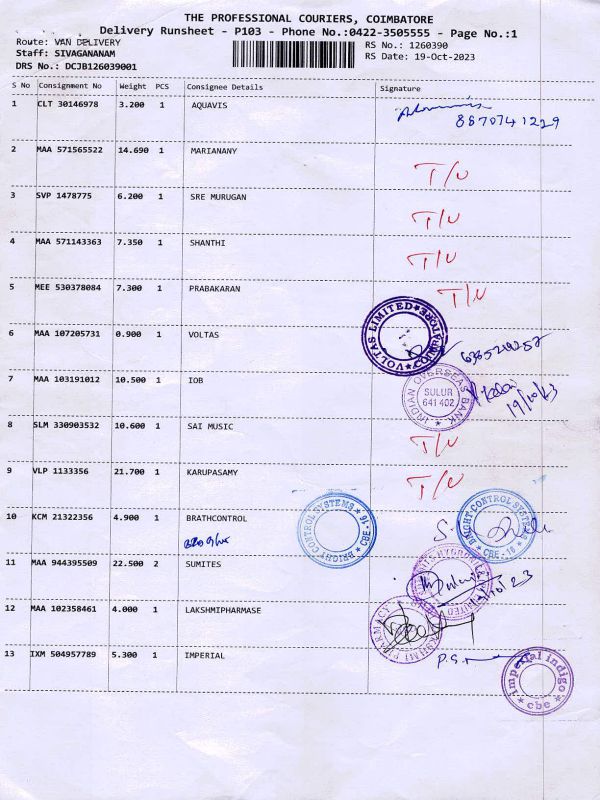 THE PROFESSIONAL COURIERS, COIMBATORE
Delivery Runsheet - P103 - Phone No.:0422-3505555 - Page No.:1
Route: VAN DELIVERY
Staff: SIVAGANANAM
DRS No.: DCJB126039001
RS No.: 1260390
RS Date: 19-Oct-2023
S No Consignment No Weight PCS Consignee Details Signature
1 CLT 30146978 3.200 1 AQUAVIS
8870741229
2 MAA 571565522 14.690 1 MARIANANY
T/U
3 SVP 1478775 6.200 1 SRE MURUGAN
T/U
4 MAA 571143363 7.350 1 SHANTHI
T/U
5 MEE 530378084 7.300 1 PRABAKARAN
T/U
VOLTAS LIMITED COIMBATORE
6 MAA 107205731 0.900 1 VOLTAS
7 MAA 103191012 10.500 1 IOB
INDIAN OVERSEAS BANK
SULUR
641 402
19/10/23
8 SLM 330903532 10.600 1 SAI MUSIC
T/U
9 VLP 1133356 21.700 1 KARUPASAMY
T/U
10 KCM 21322356 4.900 1 BRATHCONTROL
BRIGHT CONTROL SYSTEMS
CBE - 16
BRIGHT CONTROL SYSTEMS
CBE - 16
11 MAA 944395509 22.500 2 SUMITES
12 MAA 102358461 4.000 1 LAKSHMIPHARMASE
13 IXM 504957789 5.300 1 IMPERIAL
imperial indigo
cbe